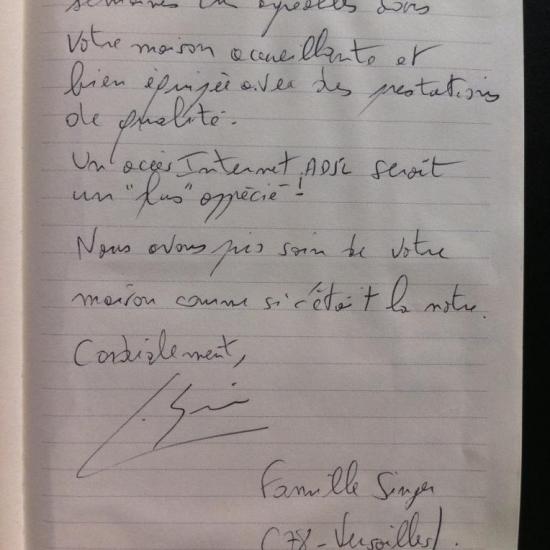 semaines agréables dans
votre maison accueillante et
bien équipée avec des prestations
de qualité.
Un accès Internet ADSL serait
un "plus" apprécié !
Nous avons pris soin de votre
maison comme si c'était la notre.
Cordialement,
Famille Singer
(78-Versailles).